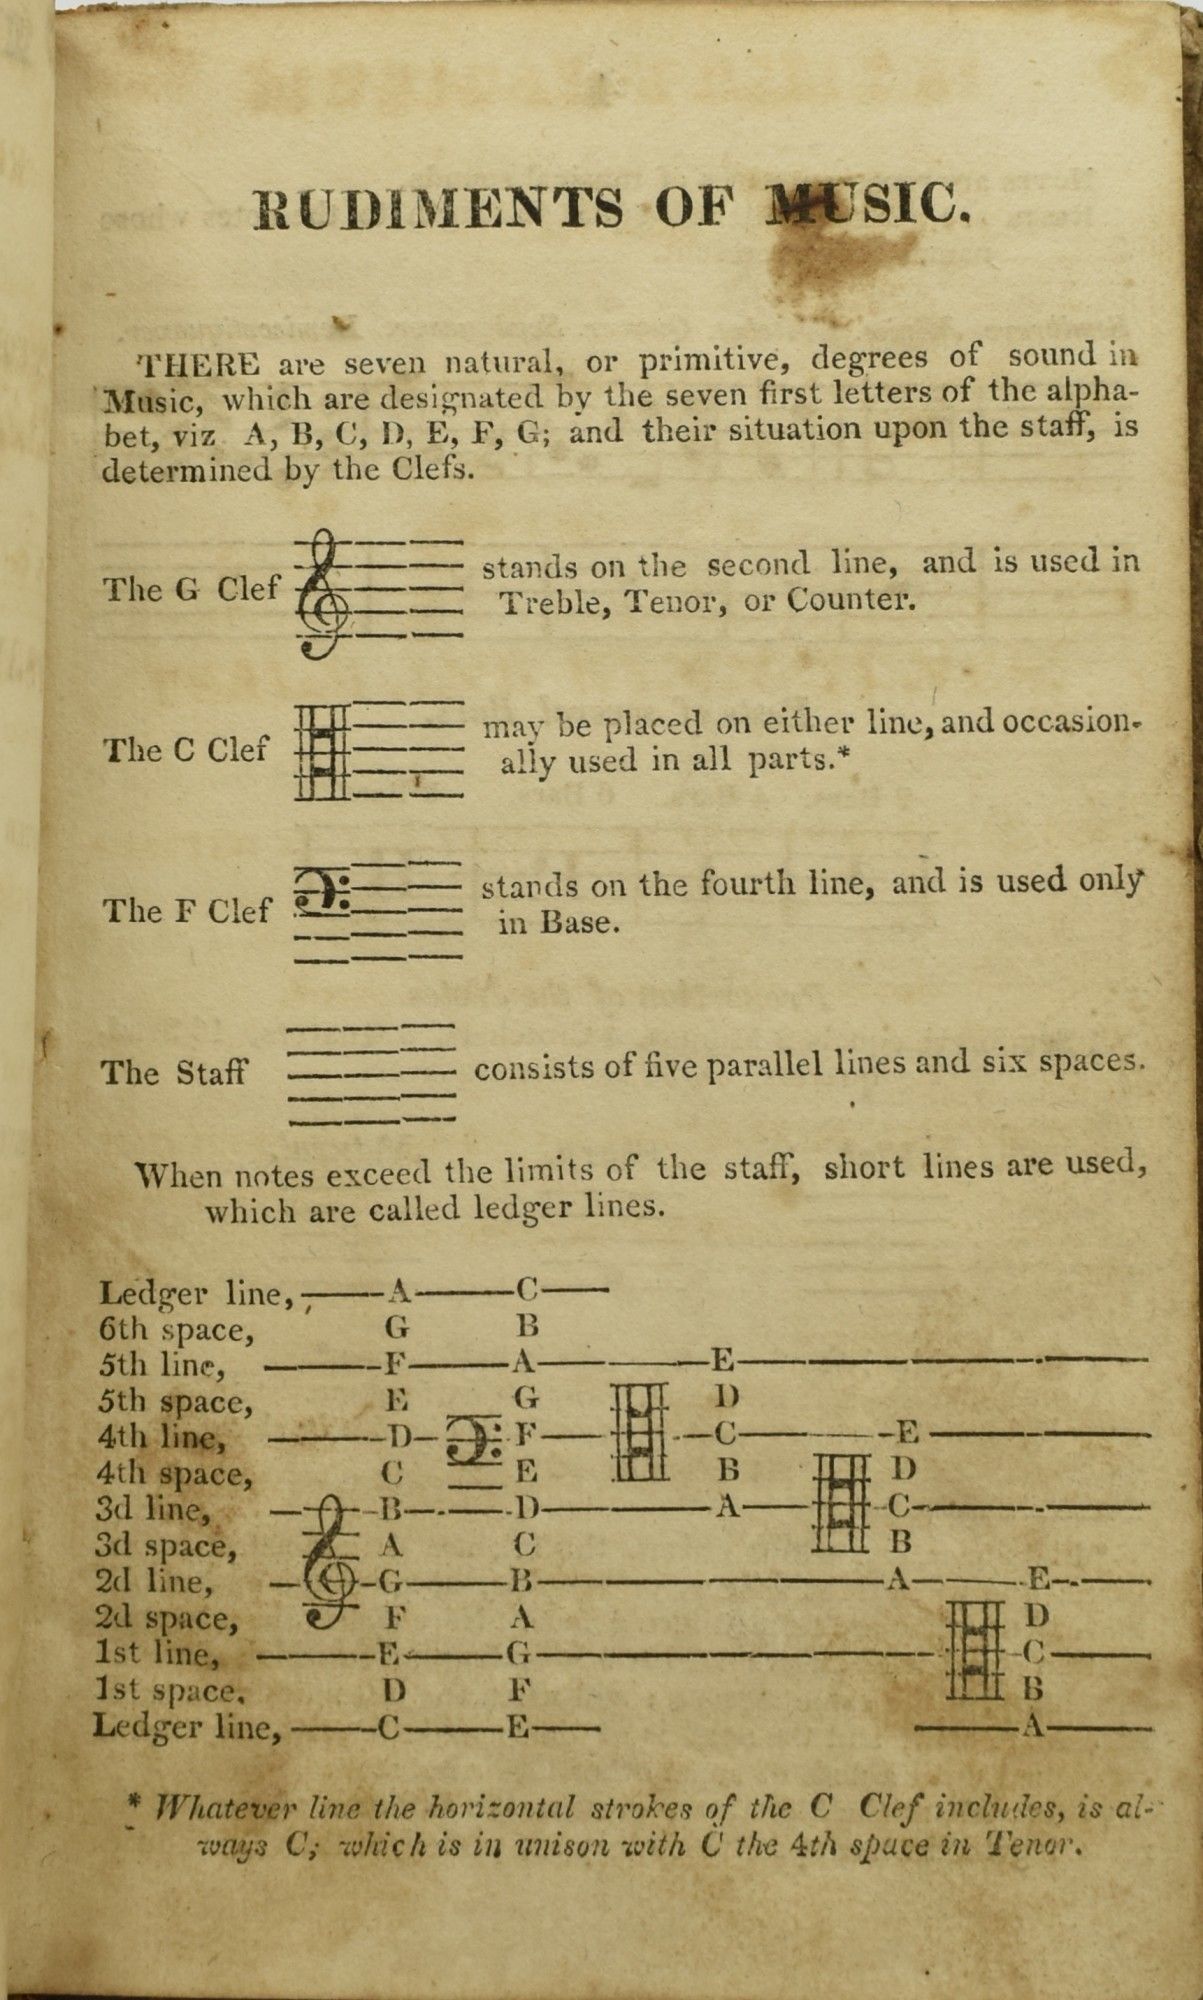 RUDIMENTS OF MUSIC.
THERE are seven natural, or primitive, degrees of sound in
Music, which are designated by the seven first letters of the alpha-
bet, viz A, B, C, D, E, F, G; and their situation upon the staff, is
determined by the Clefs.
The G Clef stands on the second line, and is used in
Treble, Tenor, or Counter.
The C Clef may be placed on either line, and occasion-
ally used in all parts.*
The F Clef stands on the fourth line, and is used only
in Base.
The Staff consists of five parallel lines and six spaces.
When notes exceed the limits of the staff, short lines are used,
which are called ledger lines.
Ledger line, A C
6th space, G B
5th line, F A E
5th space, E G D
4th line, D F C E
4th space, C E B D
3d line, B D A C
3d space, A C B
2d line, G B A E
2d space, F A D
1st line, E G C
1st space. D F B
Ledger line, C E A
* Whatever line the horizontal strokes of the C Clef includes, is al-
ways C; which is in unison with C the 4th space in Tenor.